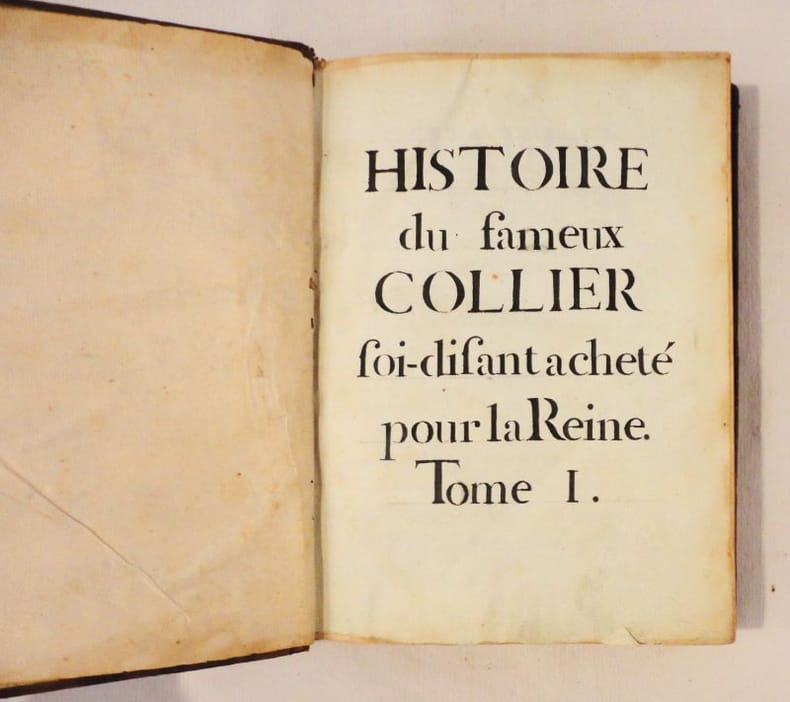 HISTOIRE
du fameux
COLLIER
ſoi-diſant acheté
pour la Reine.
Tome I.